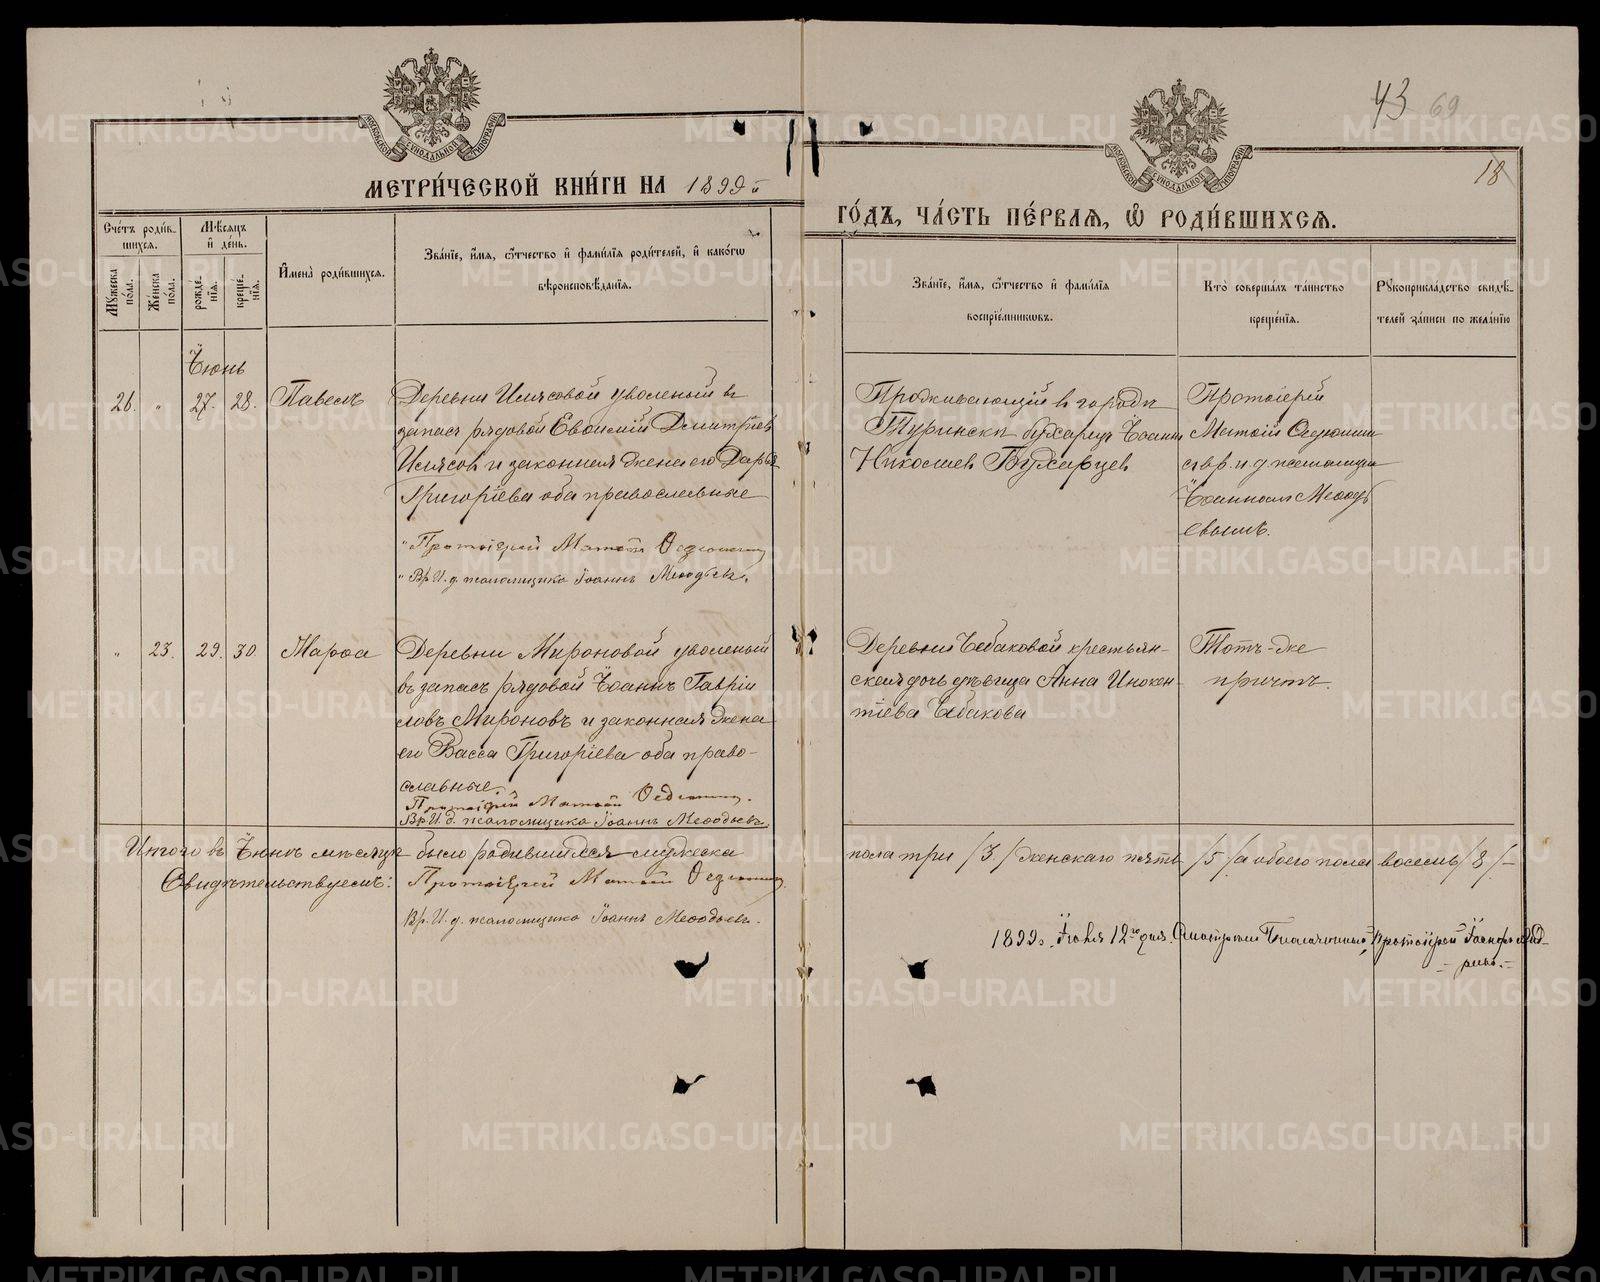 43 69
18
МЕТРИ́ЧЕСКОЙ КНИ́ГИ НА 1899й
ГО́ДЪ, ЧА́СТЬ ПЕ́РВАЯ, Ѡ РОДИ́ВШИХСЯ.
МОСКОВСКОЙ СѴНОДАЛЬНОЙ ТИПОГРАФІИ
МОСКОВСКОЙ СѴНОДАЛЬНОЙ ТИПОГРАФІИ
Счетъ родившихся.
Мужеска пола.
Женска пола.
Мѣсяцъ и день.
рожденія.
крещенія.
Имена родившихся.
Званіе, имя, ѿтчество и фамилія родителей, и какогѡ
вѣроисповѣданія.
Званіе, имя, ѿтчество и фамилія
воспріемниковъ.
Кто совершалъ таинство
крещенія.
Рукоприкладство свидѣ-
телей записи по желанію
Іюнь
26. „ 27. 28. Павелъ
Деревни Илясовой уволеный в
запасъ рядовой Евѳимій Дмитріевъ
Илясовъ и законная жена его Дарья
Григоріева оба православные
„Протоіерей Матѳій
„Вр. И. д. псаломщика Іоаннъ Меѳодьевъ.
Проживающій в городѣ
Туринскѣ бухарецъ Іоаннъ
Николаев Бухарцев
Протоіерей
Матѳій
с вр. и. д. псаломщика
Іоанномъ Меѳодь
евымъ.
„ 23. 29. 30. Марѳа
Деревни Мироновой уволеный
въ запасъ рядовой Іоаннъ Гаврiи
ловъ Мироновъ и законная жена
его Васса Григоріева оба право-
славные.
Протоіерей Матѳій
Вр. И. д. псаломщика Іоаннъ Меѳодьевъ.
Деревни Чебаковой крестьян-
ская дочь дѣвица Анна Инокен-
тіева Чебакова
Тотъ-же
причтъ.
Итого въ Іюнѣ мѣсяцѣ было родившихся мужеска пола три /3/ женскаго пять /5/ а обоего пола восемь /8/ —
Свидѣтельствуемъ: Протоіерей Матѳій
Вр. И. д. псаломщика Іоаннъ Меѳодьевъ.
1899 г. Іюля 12го дня. Смотрѣлъ Благочинный, Протоіерей Іоаннъ
METRIKI.GASO-URAL.RU